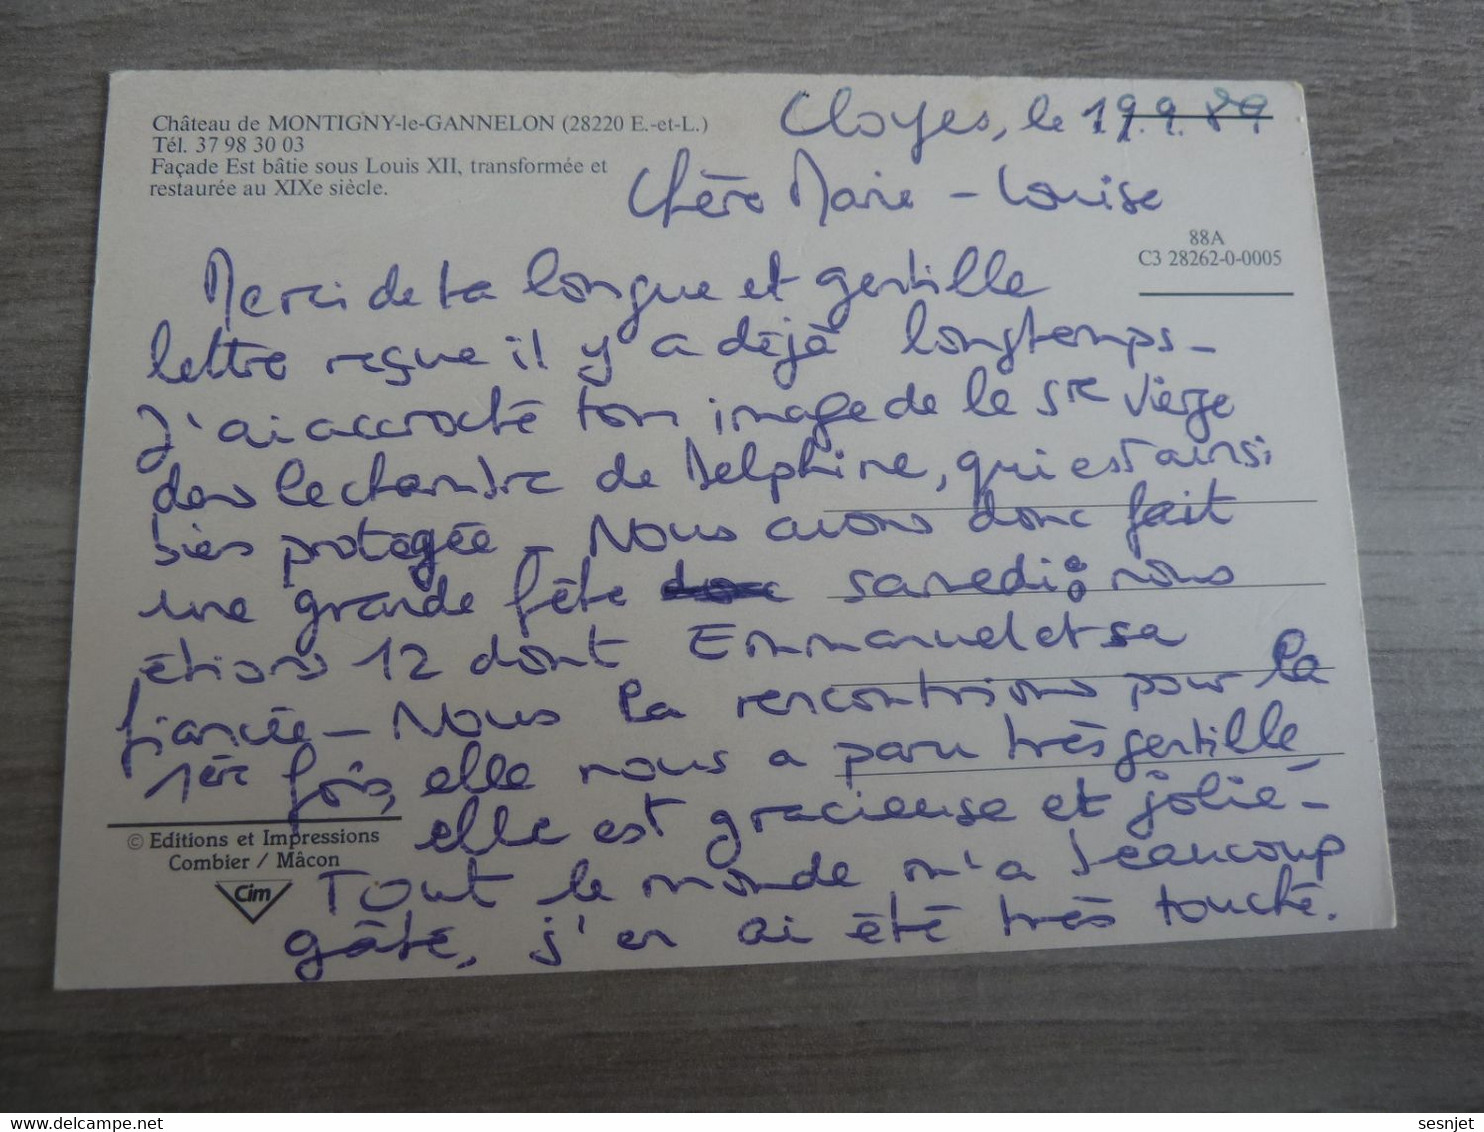 Château de MONTIGNY-le-GANNELON (28220 E.-et-L.)
Tél. 37 98 30 03
Façade Est bâtie sous Louis XII, transformée et
restaurée au XIXe siècle.
Cloyes, le 19.9.89
Chère Marie - Louise
88A
C3 28262-0-0005
Merci de ta longue et gentille
lettre reçue il y a déjà longtemps -
J'ai accroché ton image de la Ste Vierge
dans la chambre de Delphine, qui est ainsi
bien protégée - Nous avons donc fait
une grande fête samedi : nous
étions 12 dont Emmanuel et sa
fiancée - Nous la rencontrions pour la
1ère fois, elle nous a paru très gentille
elle est gracieuse et jolie -
Tout le monde m'a beaucoup
gâté, j'en ai été très touché.
© Editions et Impressions
Combier / Mâcon
Cim
sesnjet